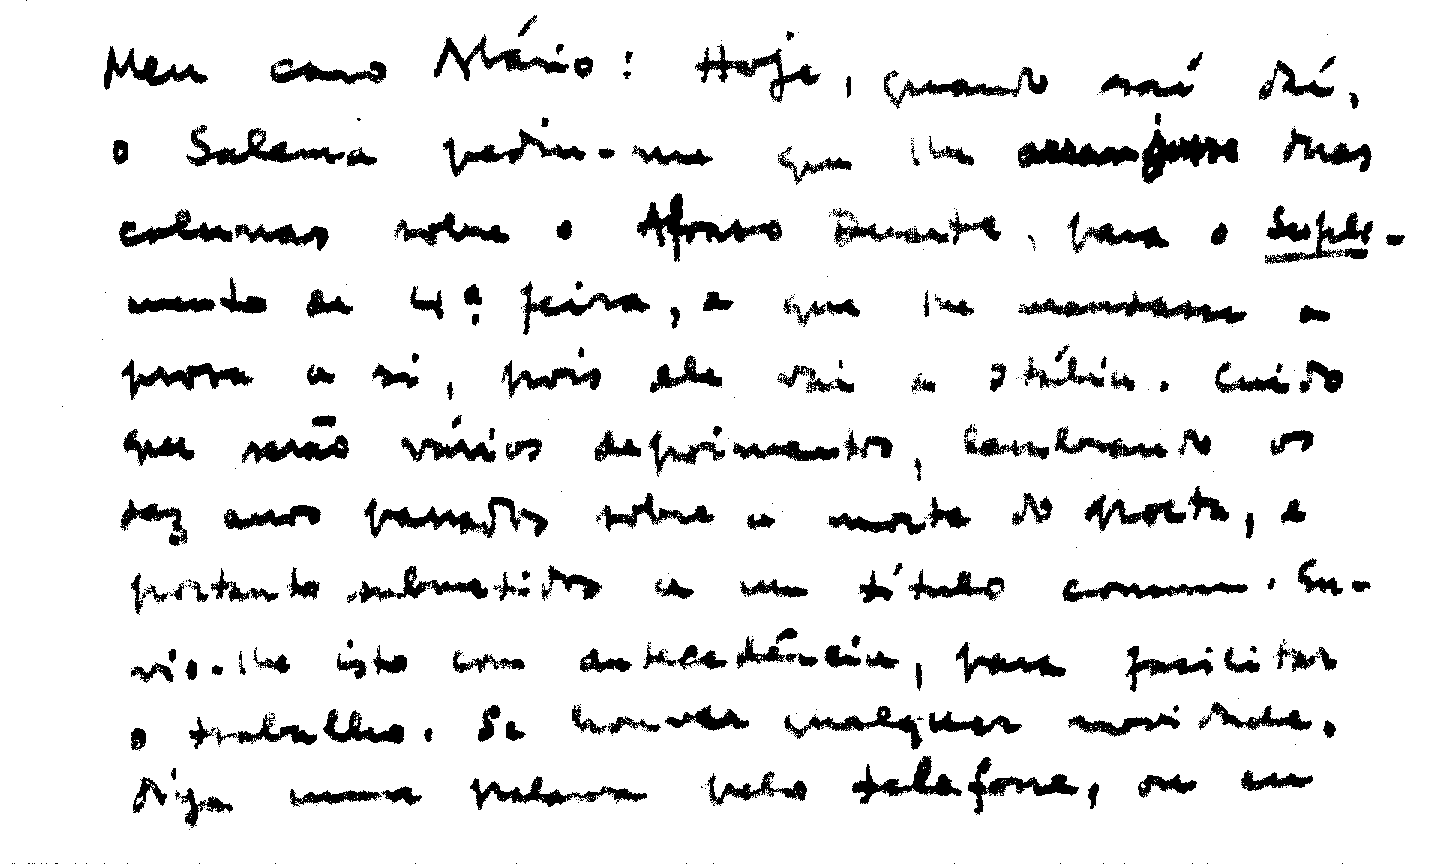 Meu caro Mário: Hoje, quando saí daí,
o Salema pediu-me que lhe arranjasse duas
colunas sobre o Afonso Duarte, para o Suple-
mento de 4ª feira, e que lhe mandasse a
prova a si, pois ele vai a Itália. Cuido
que serão vários depoimentos, lembrando os
dez anos passados sobre a morte do poeta, e
portanto submetidos a um título comum. En-
vio-lhe isto com antecedência, para facilitar
o trabalho. Se houver qualquer novidade,
diga uma palavra pelo telefone, ou eu